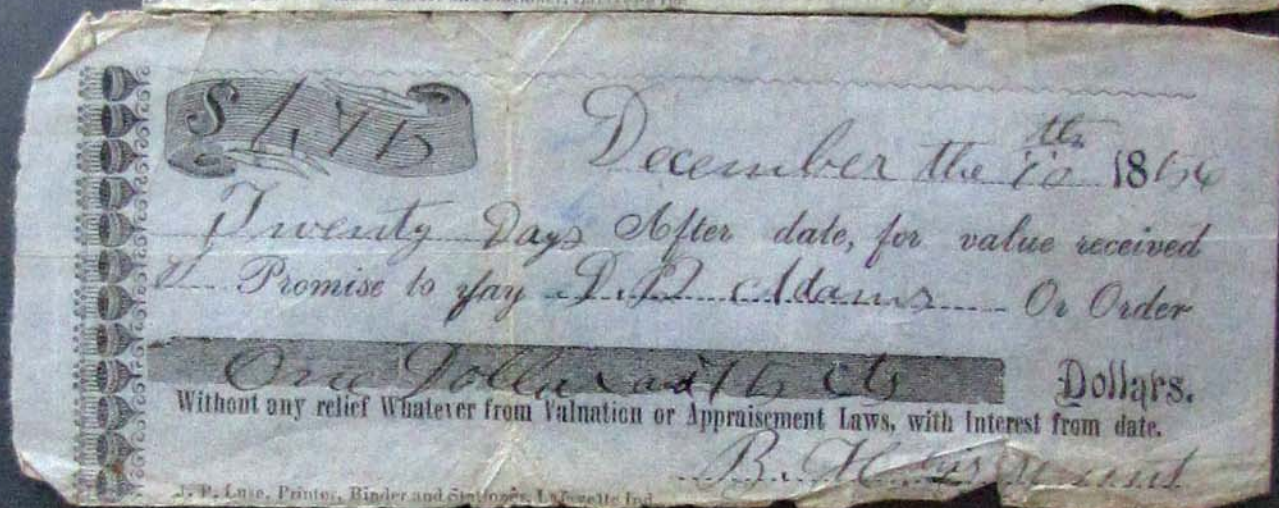 $ 1,75
December the 10th 1866
Twenty Days After date, for value received
I Promise to pay D. D. Adams Or Order
One Dollar and 75 cts Dollars.
Without any relief Whatever from Valuation or Appraisement Laws, with Interest from date.
B. H.
J. P. Luse, Printer, Binder and Stationer, Lafayette Ind